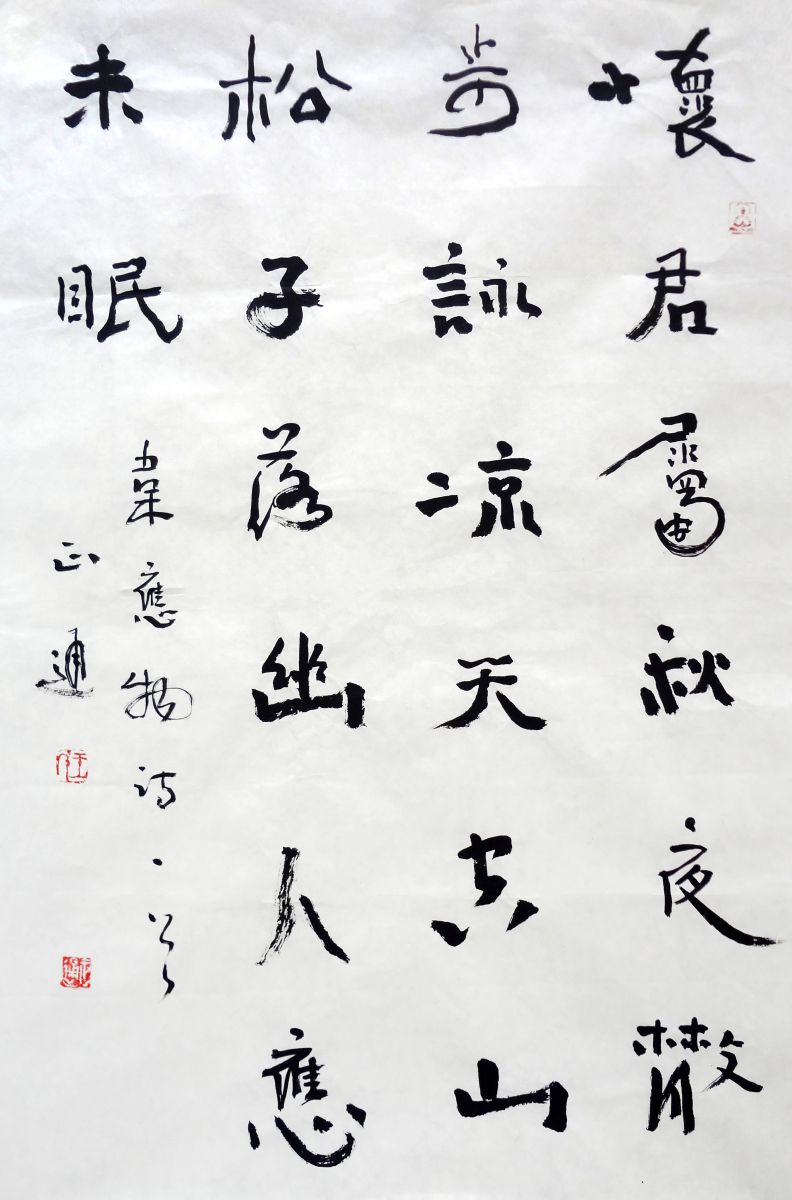 懷君屬秋夜散
步詠凉天空山
松子落幽人應
未眠
韋應物詩一首
正通